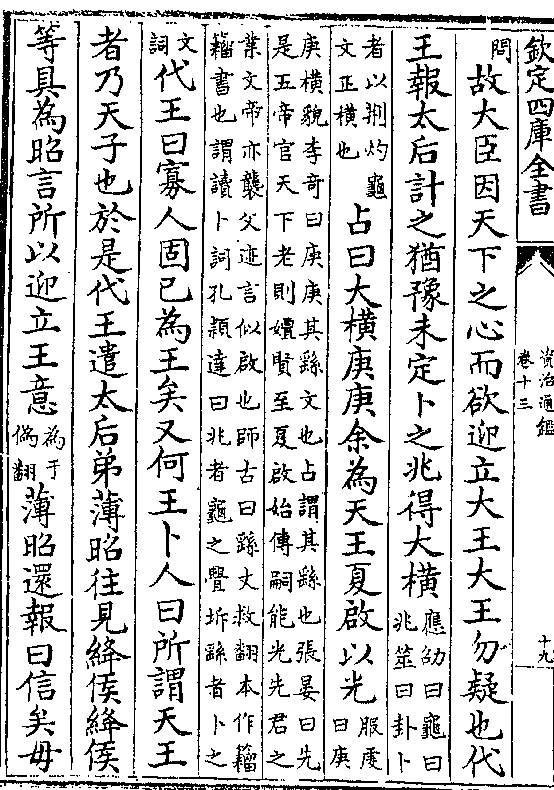 欽定四庫全書
資治通鑑
卷十三
十九
問
故大臣因天下之心而欲迎立大王大王勿疑也代
王報太后計之猶豫未定卜之兆得大橫
應劭曰龜曰
兆筮曰卦卜
者以荆灼龜
文正橫也
占曰大橫庚庚余為天王夏啟以光
服虔
曰庚
庚橫貌李奇曰庚庚其繇文也占謂其繇也張晏曰先
是五帝官天下老則嬗賢至夏啟始傳嗣能光先君之
業文帝亦襲父迹言似啟也師古曰繇丈救翻本作籀
籀書也謂讀卜詞孔穎達曰兆者龜之舋坼繇者卜之
文
詞
代王曰寡人固已為王矣又何王卜人曰所謂天王
者乃天子也於是代王遣太后弟薄昭往見絳侯絳侯
等具為昭言所以迎立王意
為于
偽翻
薄昭還報曰信矣毋